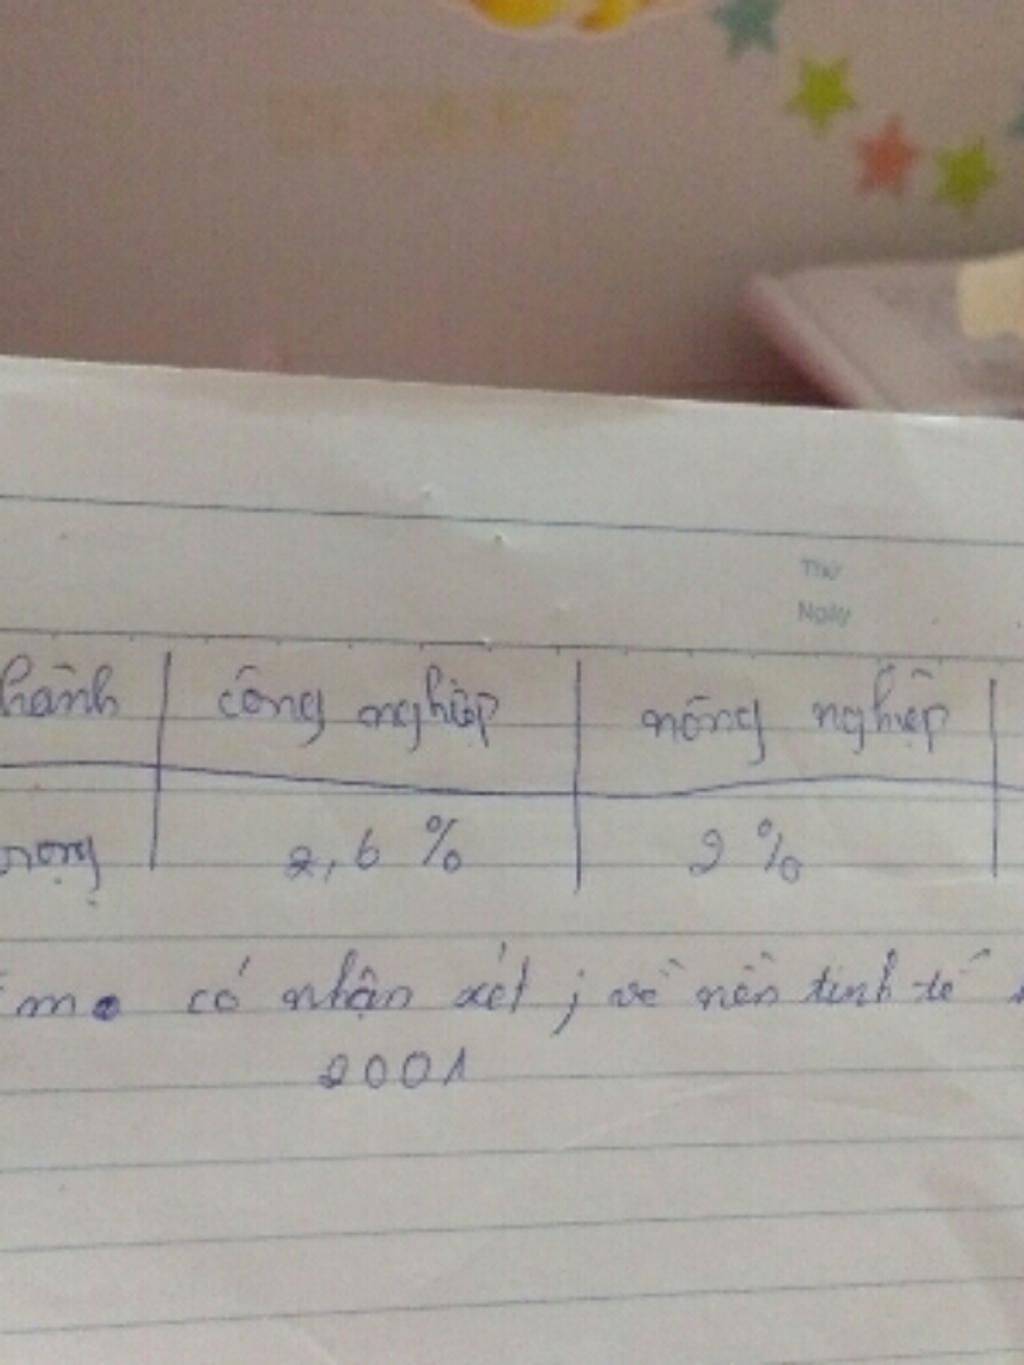 Thứ
Ngày
công nghiệp nông nghiệp
2,6 % 2 %
có nhận xét j về nền tinh tế
2001